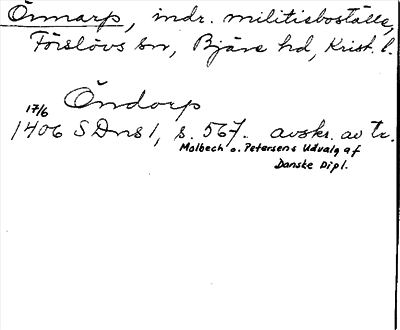 Önnarp, indr. militieboställe,
Förslövs sn, Bjäre hd, Krist. l.
Öndorp
17/6
1406 SDns 1, s. 567. avskr. av tr.
Molbech o. Petersens Udvalg af
Danske Dipl.